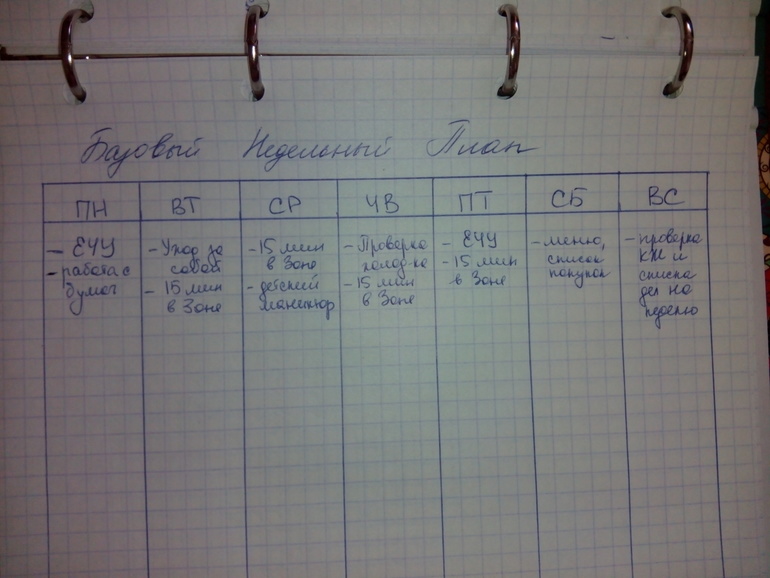 Базовый Недельный План
ПН ВТ СР ЧВ ПТ СБ ВС
- ЕЧУ
- работа с
бумаг
- Уход за
собой
- 15 мин
в Зоне
- 15 мин
в Зоне
- детский
маникюр
- Проверка
холод-ка
- 15 мин
в Зоне
- ЕЧУ
- 15 мин
в Зоне
- меню,
список
покупок
- проверка
КЖ и
списка
дел на
неделю